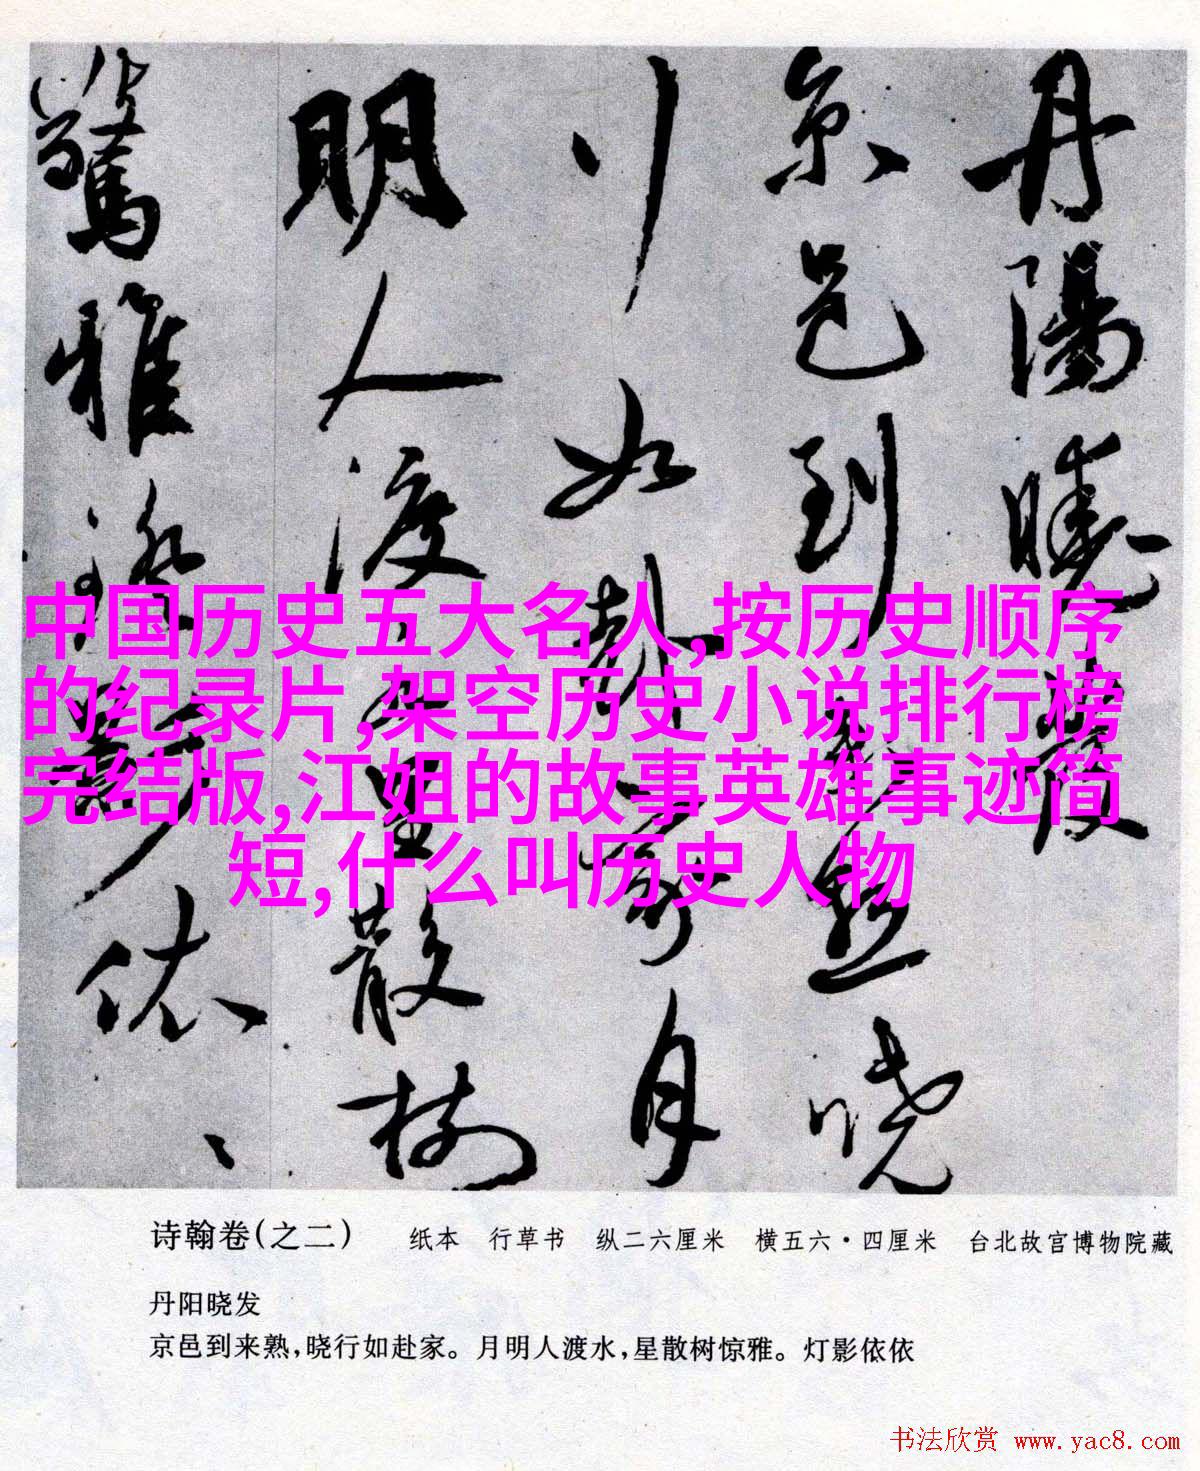 丹陽曉發
京邑到來熟曉
行如赴家月
明人渡水星散樹
驚雅燈影依、
、
中国历史五大名人,按历史顺序
的纪录片,架空历史小说排行榜
完结版,江姐的故事英雄事迹简
短,什么叫历史人物
诗翰卷(之二) 纸本 行草书 纵二六厘米 横五六·四厘米 台北故宫博物院藏
丹阳晓发
京邑到来熟,晓行如赴家。月明人渡水,星散树惊雅。灯影依依
书法欣赏 www.yac8.com